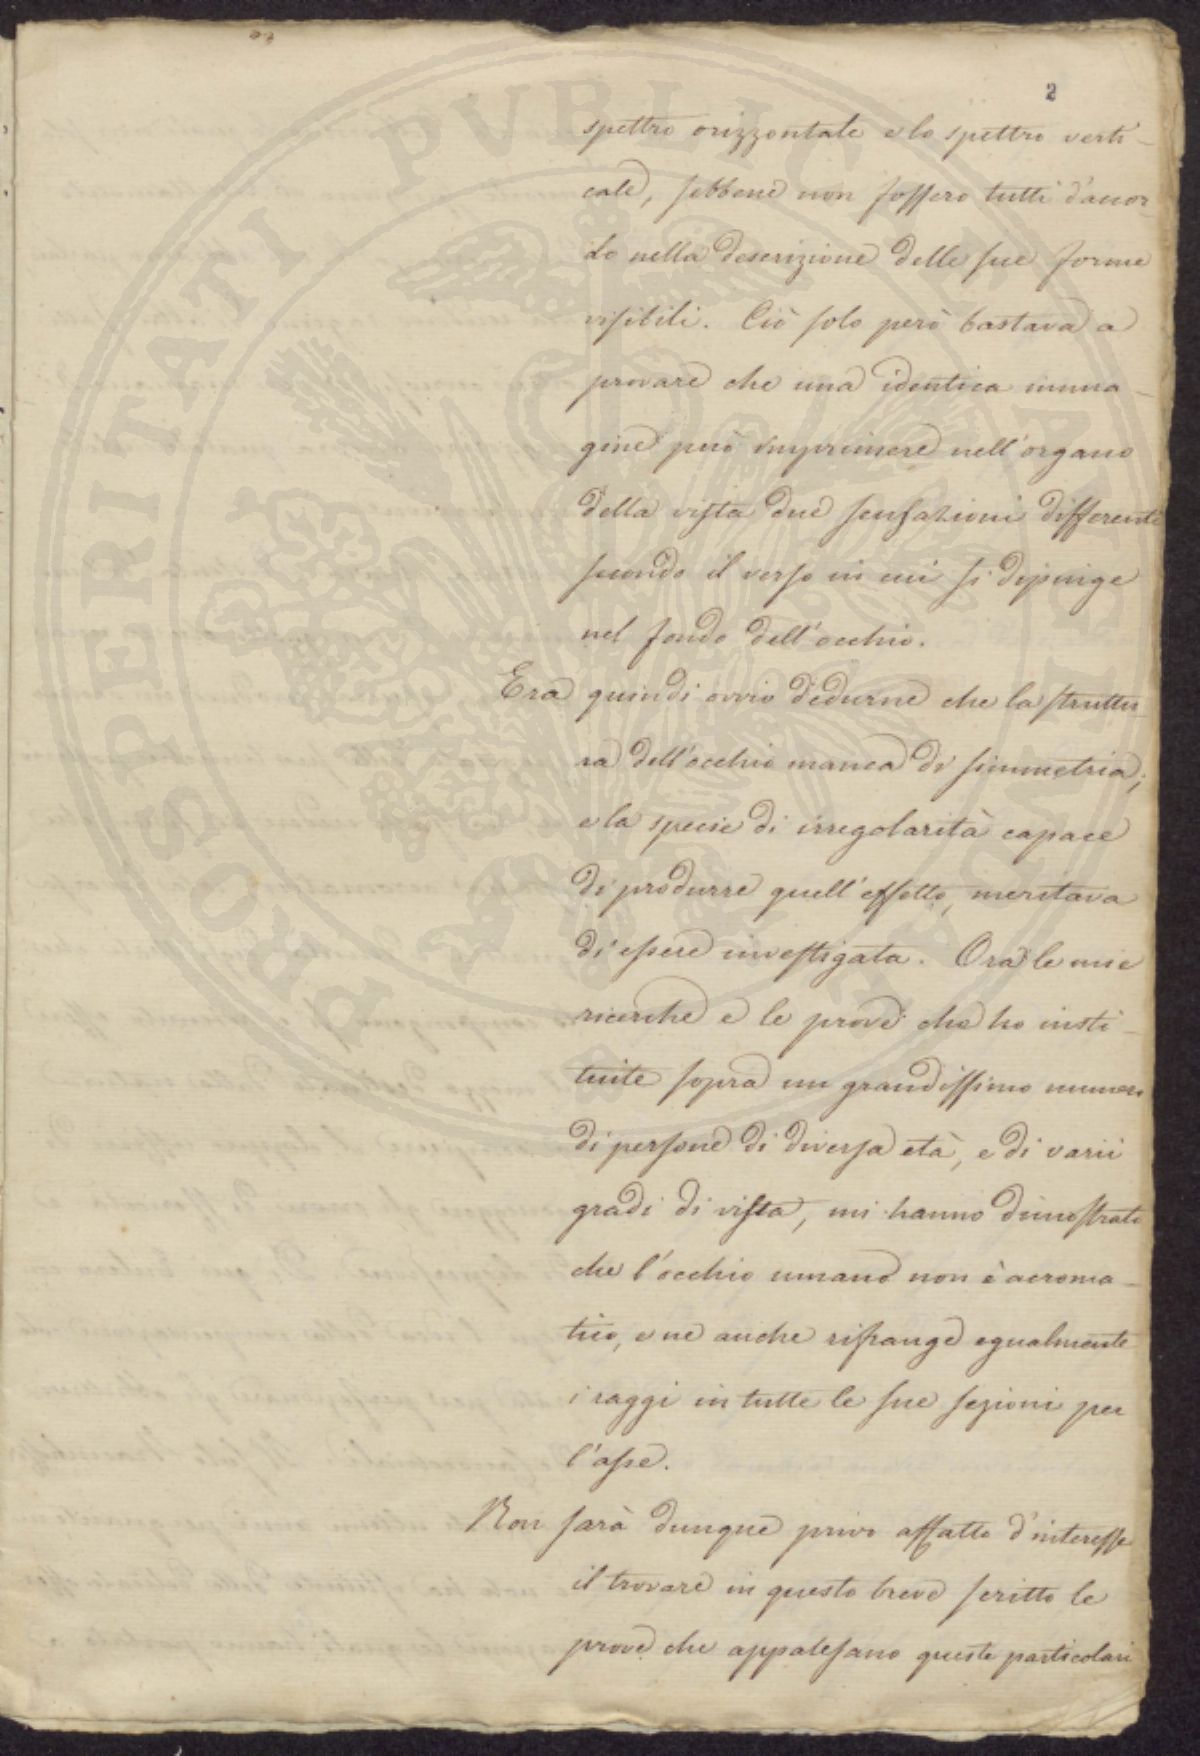 2
spettro orizzontale e lo spettro verti-
cale, sebbene non fossero tutti d'accor-
do nella descrizione delle sue forme
visibili. Ciò solo però bastava a
provare che una identica imma-
gine può imprimere nell'organo
della vista due sensazioni differenti
secondo il verso in cui si dipinge
nel fondo dell'occhio.
Era quindi ovvio dedurne che la struttu-
ra dell'occhio manca di simmetria;
e la specie di irregolarità capace
di produrre quell'effetto, meritava
di essere investigata. Ora le mie
ricerche e le prove che ho insti-
tuite sopra un grandissimo numero
di persone di diversa età, e di varii
gradi di vista, mi hanno dimostrato
che l'occhio umano non è acroma-
tico, e ne anche rifrange egualmente
i raggi in tutte le sue sezioni per
l'asse.
Non sarà dunque privo affatto d'interesse
il trovare in questo breve scritto le
prove che appalesano queste particolari
PROSPERITATI PVBLICAE AVGENDAE